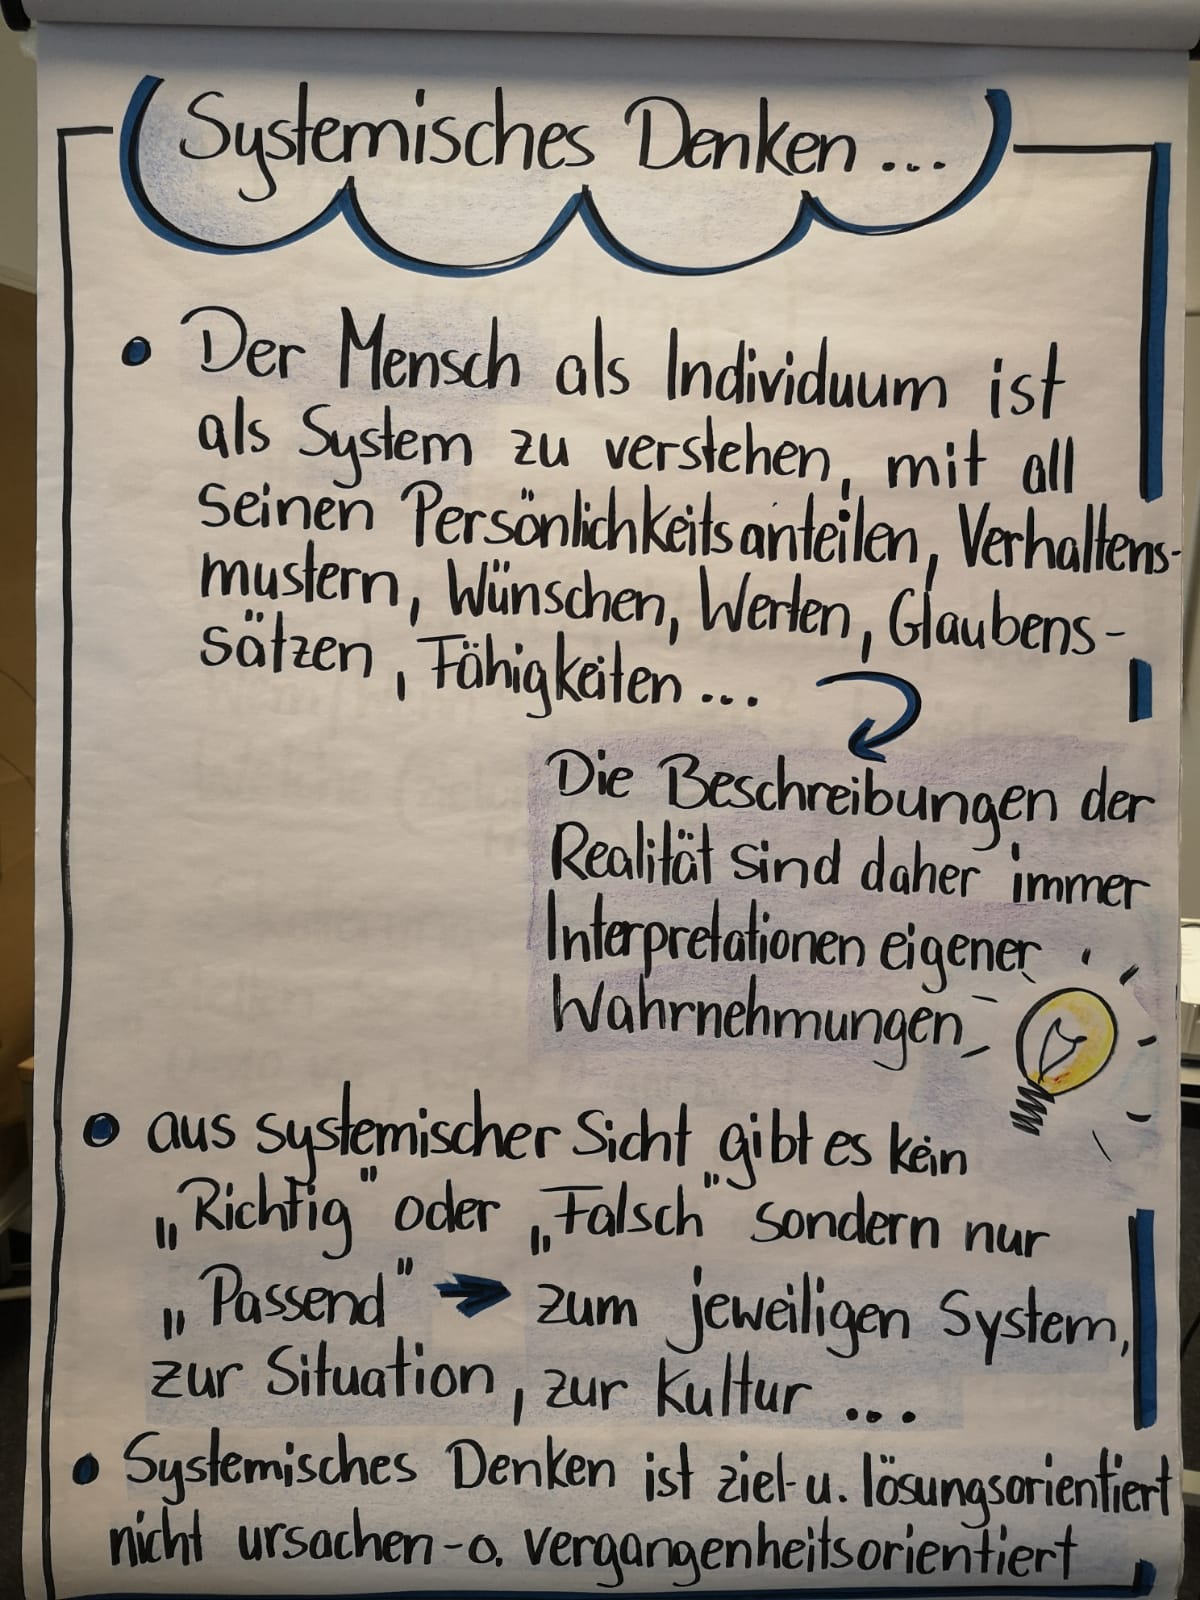 Systemisches Denken ...
• Der Mensch als Individuum ist
als System zu verstehen, mit all
seinen Persönlichkeitsanteilen, Verhaltens-
mustern, Wünschen, Werten, Glaubens-
sätzen, Fähigkeiten ...
Die Beschreibungen der
Realität sind daher immer
Interpretationen eigener
Wahrnehmungen
• aus systemischer Sicht gibt es kein
„Richtig" oder „Falsch" sondern nur
„Passend" → zum jeweiligen System,
zur Situation, zur Kultur ...
• Systemisches Denken ist ziel- u. lösungsorientiert
nicht ursachen- o. vergangenheitsorientiert